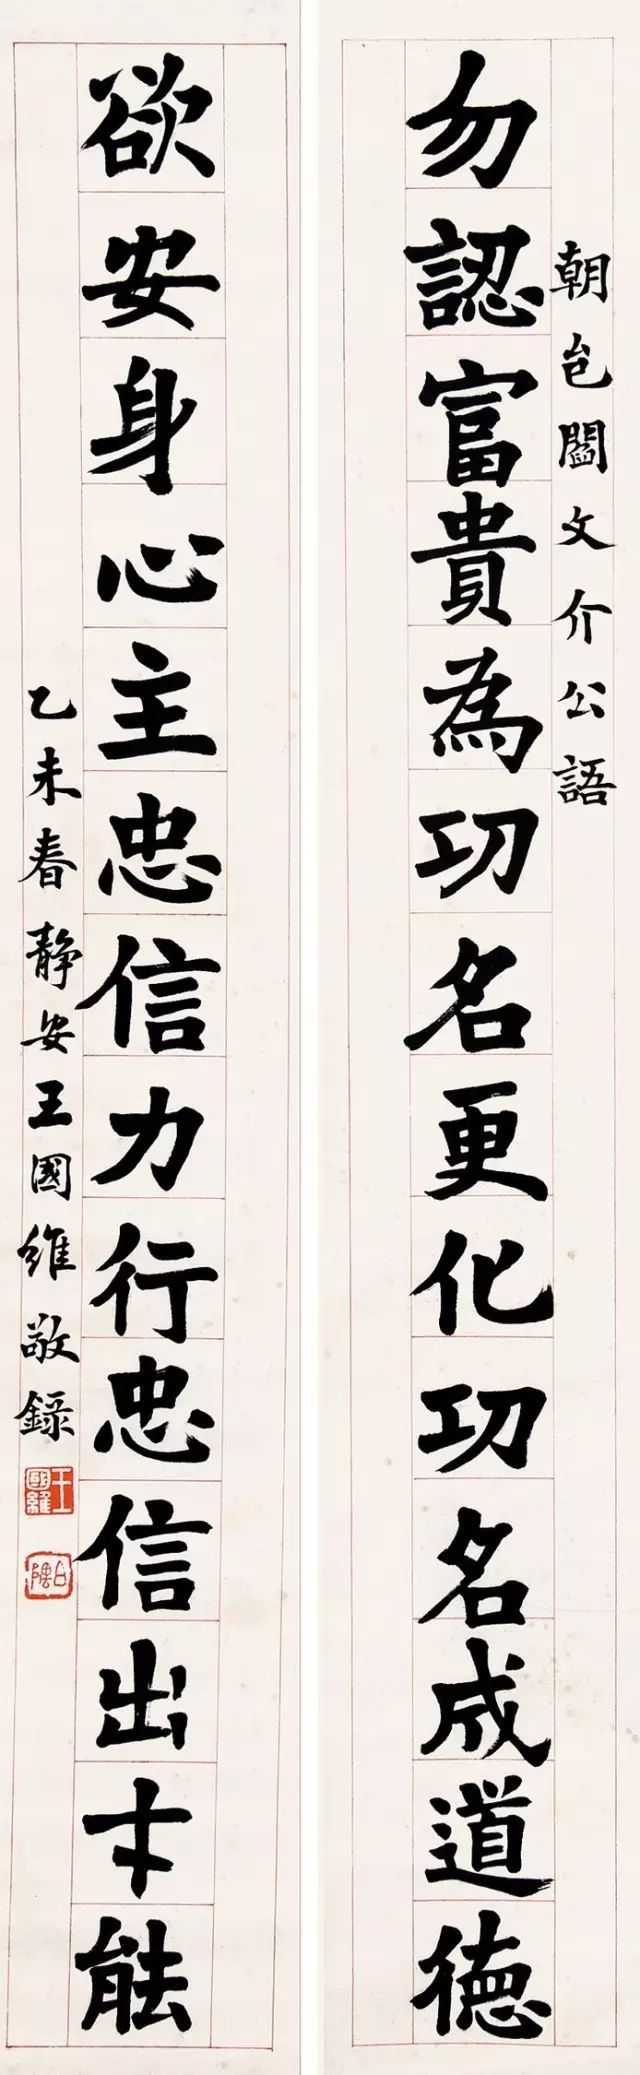 朝邑閻文介公語
勿認富貴為功名更化功名成道德
欲安身心主忠信力行忠信出才能
乙未春静安王國維敬錄
王國維